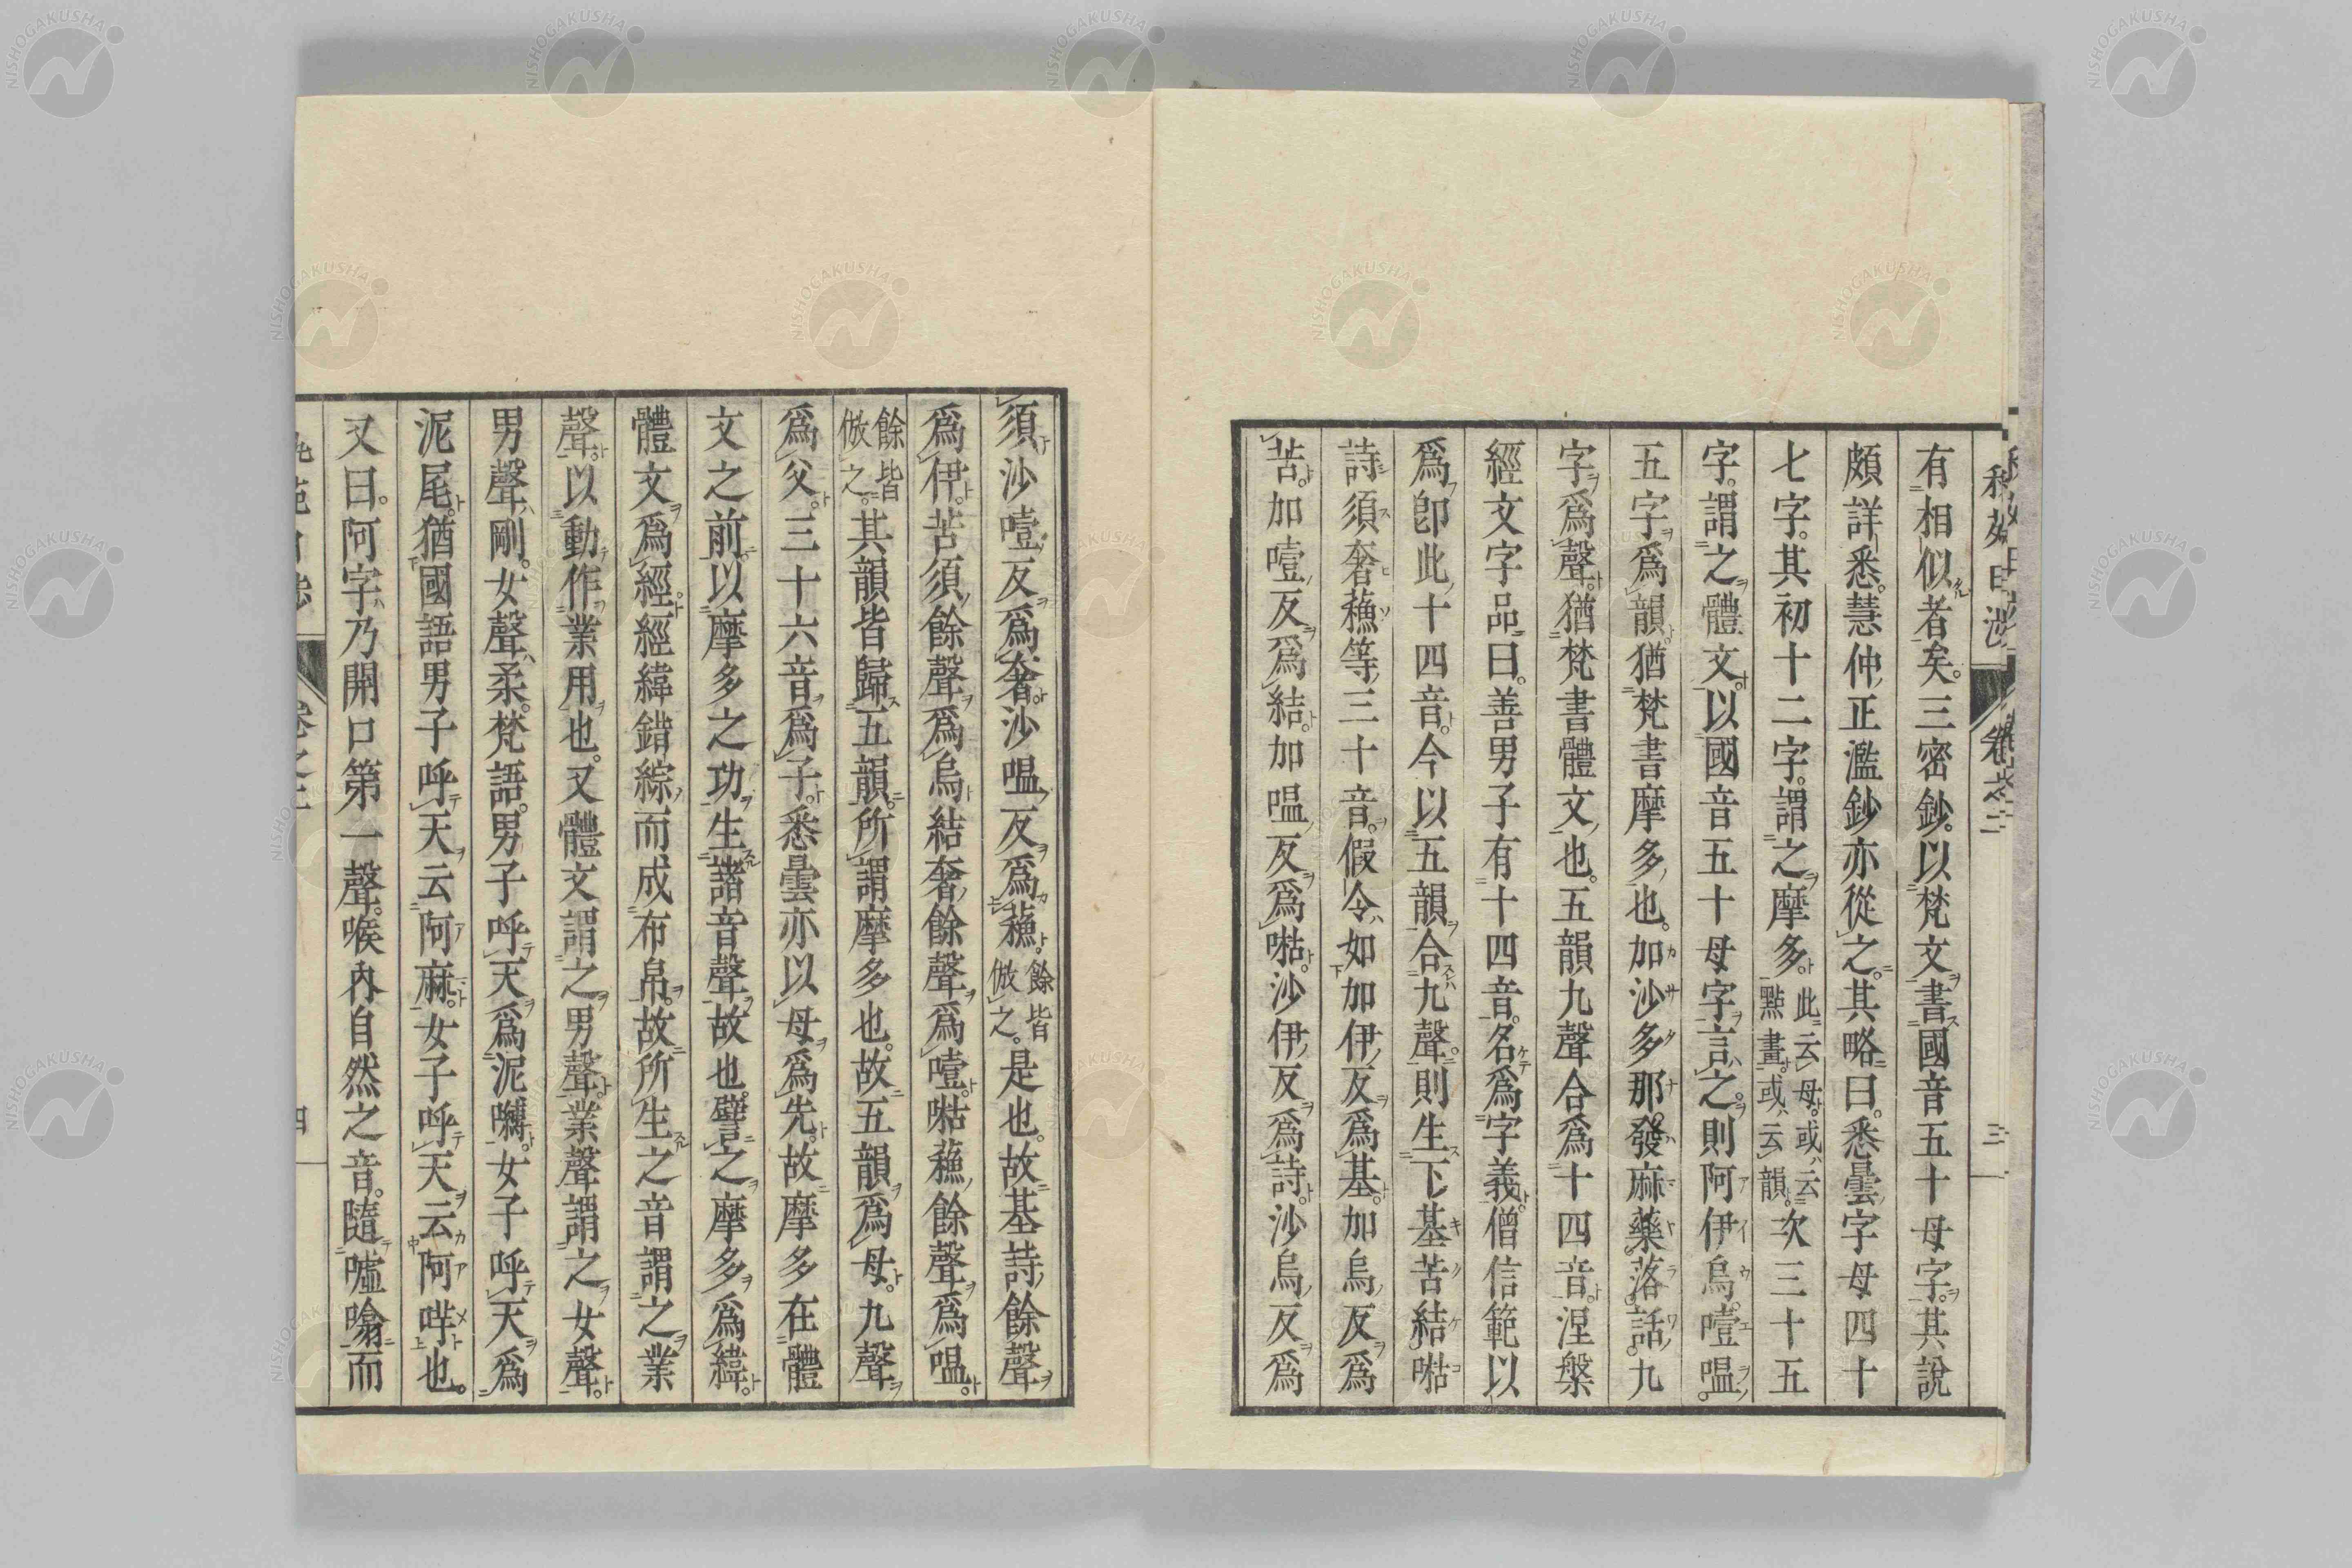 有相似者矣。三密鈔。以梵文書國音五十母字。其說
頗詳悉。慧仲正濫鈔亦從之。其略曰。悉曇字母四十
七字。其初十二字。謂之摩多。此云母。或云點畫。或云韻。次三十五
字。謂之體文。以國音五十母字言之。則阿伊烏噎嗢。
五字爲韻。猶梵書摩多也。加沙多那。發麻藥落話。九
字爲聲。猶梵書體文也。五韻九聲合爲十四音。涅槃
經文字品曰。善男子有十四音。名爲字義。僧信範以
爲卽此十四音。今以五韻合九聲。則生下基苦結㗬
詩須奢蘓等三十音。假令如加伊反爲基。加烏反爲
苦。加噎反爲結。加嗢反爲㗬。沙伊反爲詩。沙烏反爲
須。沙噎反爲奢。沙嗢反爲蘓。餘皆倣之。是也。故基詩餘聲
爲伊。苦須餘聲爲烏。結奢餘聲爲噎。㗬蘓餘聲爲嗢。
餘皆倣之。其韻皆歸五韻。所謂摩多也。故五韻爲母。九聲
爲父。三十六音爲子。悉曇亦以母爲先。故摩多在體
文之前。以摩多之功生諸音聲故也。譬之摩多爲緯。
體文爲經。經緯錯綜而成布帛。故所生之音謂之業
聲。以動作業用也。又體文謂之男聲。業聲謂之女聲。
男聲剛。女聲柔。梵語。男子呼天爲泥嚩。女子呼天爲
泥尾。猶國語男子呼天云阿麻。女子呼天云阿哶也。
又曰。阿字乃開口第一聲。喉內自然之音。隨噓噏而
卷之二
三
四
NISHOGAKUSHA